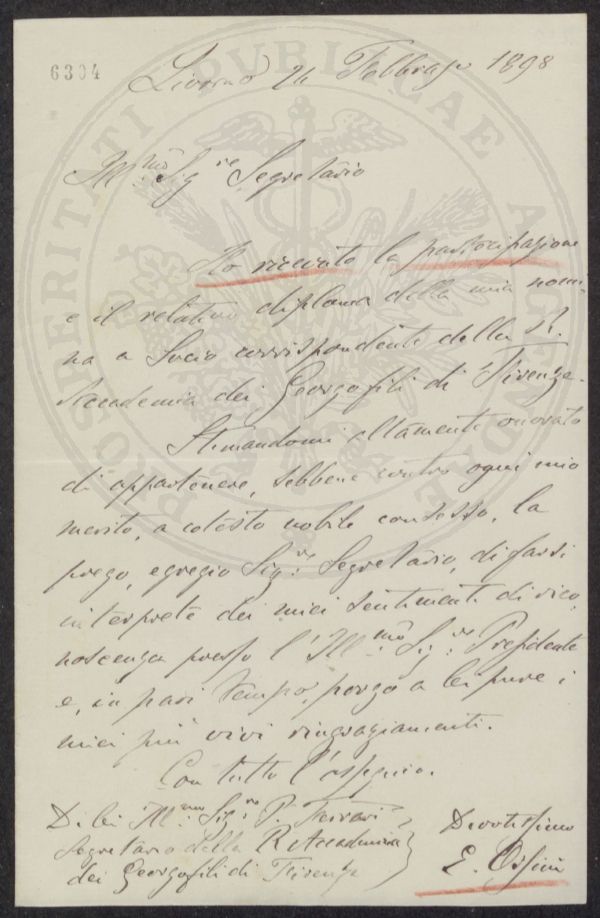 6304
Livorno 24 Febbrajo 1898
Ill.mo Sig.re Segretario
Ho ricevuto la partecipazione
e il relativo diploma della mia nomi-
na a Socio corrispondente della R.
Accademia dei Georgofili di Firenze.
Stimandomi altamente onorato
di appartenere, sebbene contro ogni mio
merito, a cotesto nobile consesso, La
prego, egregio Sig.re Segretario, di farsi
interprete dei miei sentimenti di rico,
noscenza presso l'Ill.mo Sig.re Presidente
e, in pari tempo, porgo a lei pure i
miei più vivi ringraziamenti.
Con tutto l'ossequio.
Di lei Ill.mo Sig.re P. Ferrari
Segretario della R. Accademia
dei Georgofili di Firenze
Devotissimo
E. Orsini
PROSPERITATI PVBLICAE AVGENDAE